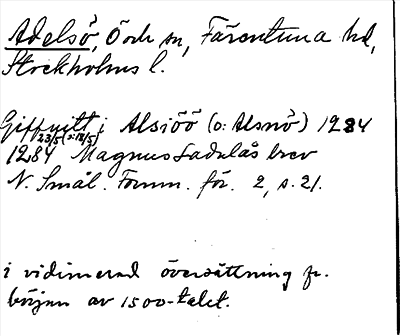 Adelsö, Ö och sn, Färentuna hd,
Stockholms l.
Giffvitt i Alsiöö (o: Alsnö) 1284
23/5 (o: 18/5)
1284 Magnus Ladulås brev
N. Smål. Fornm. för. 2, s. 21.
i vidimerad översättning fr.
början av 1500-talet.